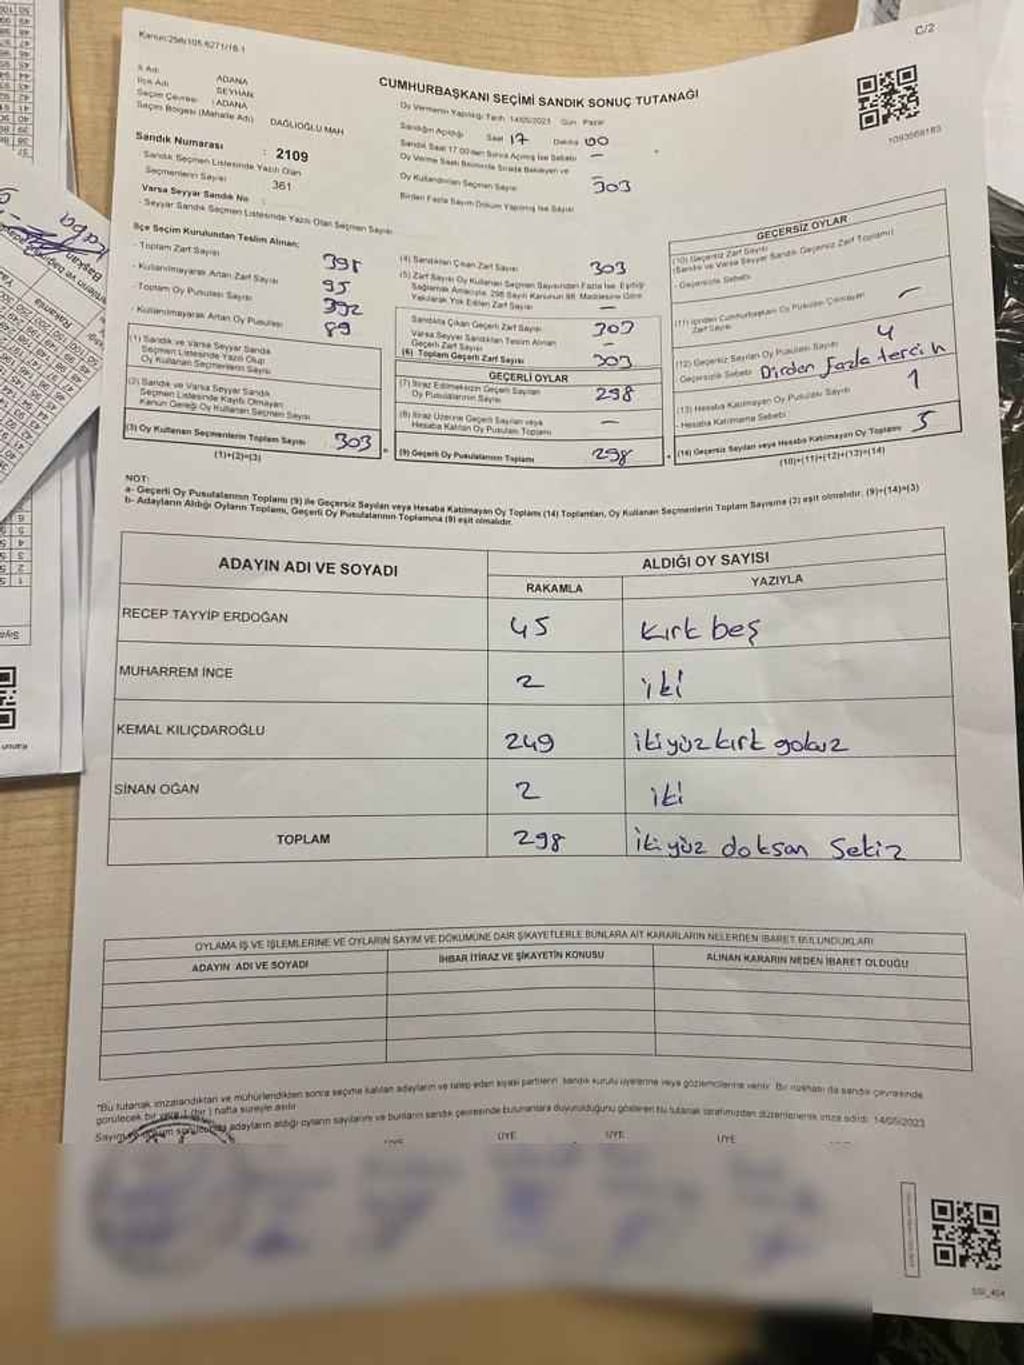 Kanun:298/105,6271/18-1
C/2
İl Adı ADANA
İlçe Adı SEYHAN
Seçim Çevresi : ADANA
Seçim Bölgesi (Mahalle Adı) DAĞLIOĞLU MAH
CUMHURBAŞKANI SEÇİMİ SANDIK SONUÇ TUTANAĞI
Oy Vermenin Yapıldığı Tarih 14/05/2023 Gün Pazar
Sandığın Açıldığı Saat 17 Dakika 00
Oy Kullandırılan Seçmen Sayısı 303
Birden Fazla Sayım Döküm Yapılmış İse Sayısı
Sandık Numarası : 2109
Sandık Seçmen Listesinde Yazılı Olan
Seçmenlerin Sayısı 361
Varsa Seyyar Sandık No
- Seyyar Sandık Seçmen Listesinde Yazılı Olan Seçmen Sayısı
İlçe Seçim Kurulundan Teslim Alınan;
- Toplam Zarf Sayısı 398
- Kullanılmayarak Artan Zarf Sayısı 95
- Toplam Oy Pusulası Sayısı 392
- Kullanılmayarak Artan Oy Pusulası 89
(1) Sandık ve Varsa Seyyar Sandık
Seçmen Listesinde Yazılı Olup
Oy Kullanan Seçmenlerin Sayısı
(2) Sandık ve Varsa Seyyar Sandık
Seçmen Listesinde Kayıtlı Olmayan
Kanun Gereği Oy Kullanan Seçmen Sayısı
(3) Oy Kullanan Seçmenlerin Toplam Sayısı 303
(1)+(2)=(3)
(4) Sandıktan Çıkan Zarf Sayısı 303
(5) Zarf Sayısı Oy Kullanan Seçmen Sayısından Fazla İse, Eşitliği
Sağlamak Amacıyla, 298 Sayılı Kanunun 98. Maddesine Göre
Yakılarak Yok Edilen Zarf Sayısı —
Sandıkta Çıkan Geçerli Zarf Sayısı 303
Varsa Seyyar Sandıktan Teslim Alınan
Geçerli Zarf Sayısı —
(6) Toplam Geçerli Zarf Sayısı 303
GEÇERLİ OYLAR
(7) İtiraz Edilmeksizin Geçerli Sayılan
Oy Pusulalarının Sayısı 298
(8) İtiraz Üzerine Geçerli Sayılan veya
Hesaba Katılan Oy Pusulası Toplamı —
(9) Geçerli Oy Pusulalarının Toplamı 298
GEÇERSİZ OYLAR
(10) Geçersiz Zarf Sayısı
(Sandık ve Varsa Seyyar Sandık Geçersiz Zarf Toplamı)
- Geçersizlik Sebebi
(11) İçinden Cumhurbaşkanı Oy Pusulası Çıkmayan
Zarf Sayısı —
(12) Geçersiz Sayılan Oy Pusulası Sayısı 4
- Geçersizlik Sebebi Birden fazla tercih
(13) Hesaba Katılmayan Oy Pusulası Sayısı 1
- Hesaba Katılmama Sebebi
(14) Geçersiz Sayılan veya Hesaba Katılmayan Oy Toplamı 5
(10)+(11)+(12)+(13)=(14)
NOT:
a- Geçerli Oy Pusulalarının Toplamı (9) ile Geçersiz Sayılan veya Hesaba Katılmayan Oy Toplamı (14) Toplamları, Oy Kullanan Seçmenlerin Toplam Sayısına (3) eşit olmalıdır. (9)+(14)=(3)
b- Adayların Aldığı Oyların Toplamı, Geçerli Oy Pusulalarının Toplamına (9) eşit olmalıdır.
ADAYIN ADI VE SOYADI
ALDIĞI OY SAYISI
RAKAMLA YAZIYLA
RECEP TAYYİP ERDOĞAN 45 kırk beş
MUHARREM İNCE 2 iki
KEMAL KILIÇDAROĞLU 249 ikiyüz kırk dokuz
SİNAN OĞAN 2 iki
TOPLAM 298 ikiyüz doksan sekiz
OYLAMA İŞ VE İŞLEMLERİNE VE OYLARIN SAYIM VE DÖKÜMÜNE DAİR ŞİKAYETLERLE BUNLARA AİT KARARLARIN NELERDEN İBARET BULUNDUKLARI
ADAYIN ADI VE SOYADI İHBAR İTİRAZ VE ŞİKAYETİN KONUSU ALINAN KARARIN NEDEN İBARET OLDUĞU
*Bu tutanak imzalandıktan ve mühürlendikten sonra seçime katılan adayların ve talep eden siyasi partilerin sandık kurulu üyelerine veya gözlemcilerine verilir. Bir nüshası da sandık çevresinde
görülecek bir yere 1 (bir) hafta süreyle asılır.
adayların aldığı oyların sayılarını ve bunların sandık çevresinde bulunanlara duyurulduğunu gösteren bu tutanak tarafımızdan düzenlenerek imza edildi. 14/05/2023
ÜYE ÜYE ÜYE ÜYE